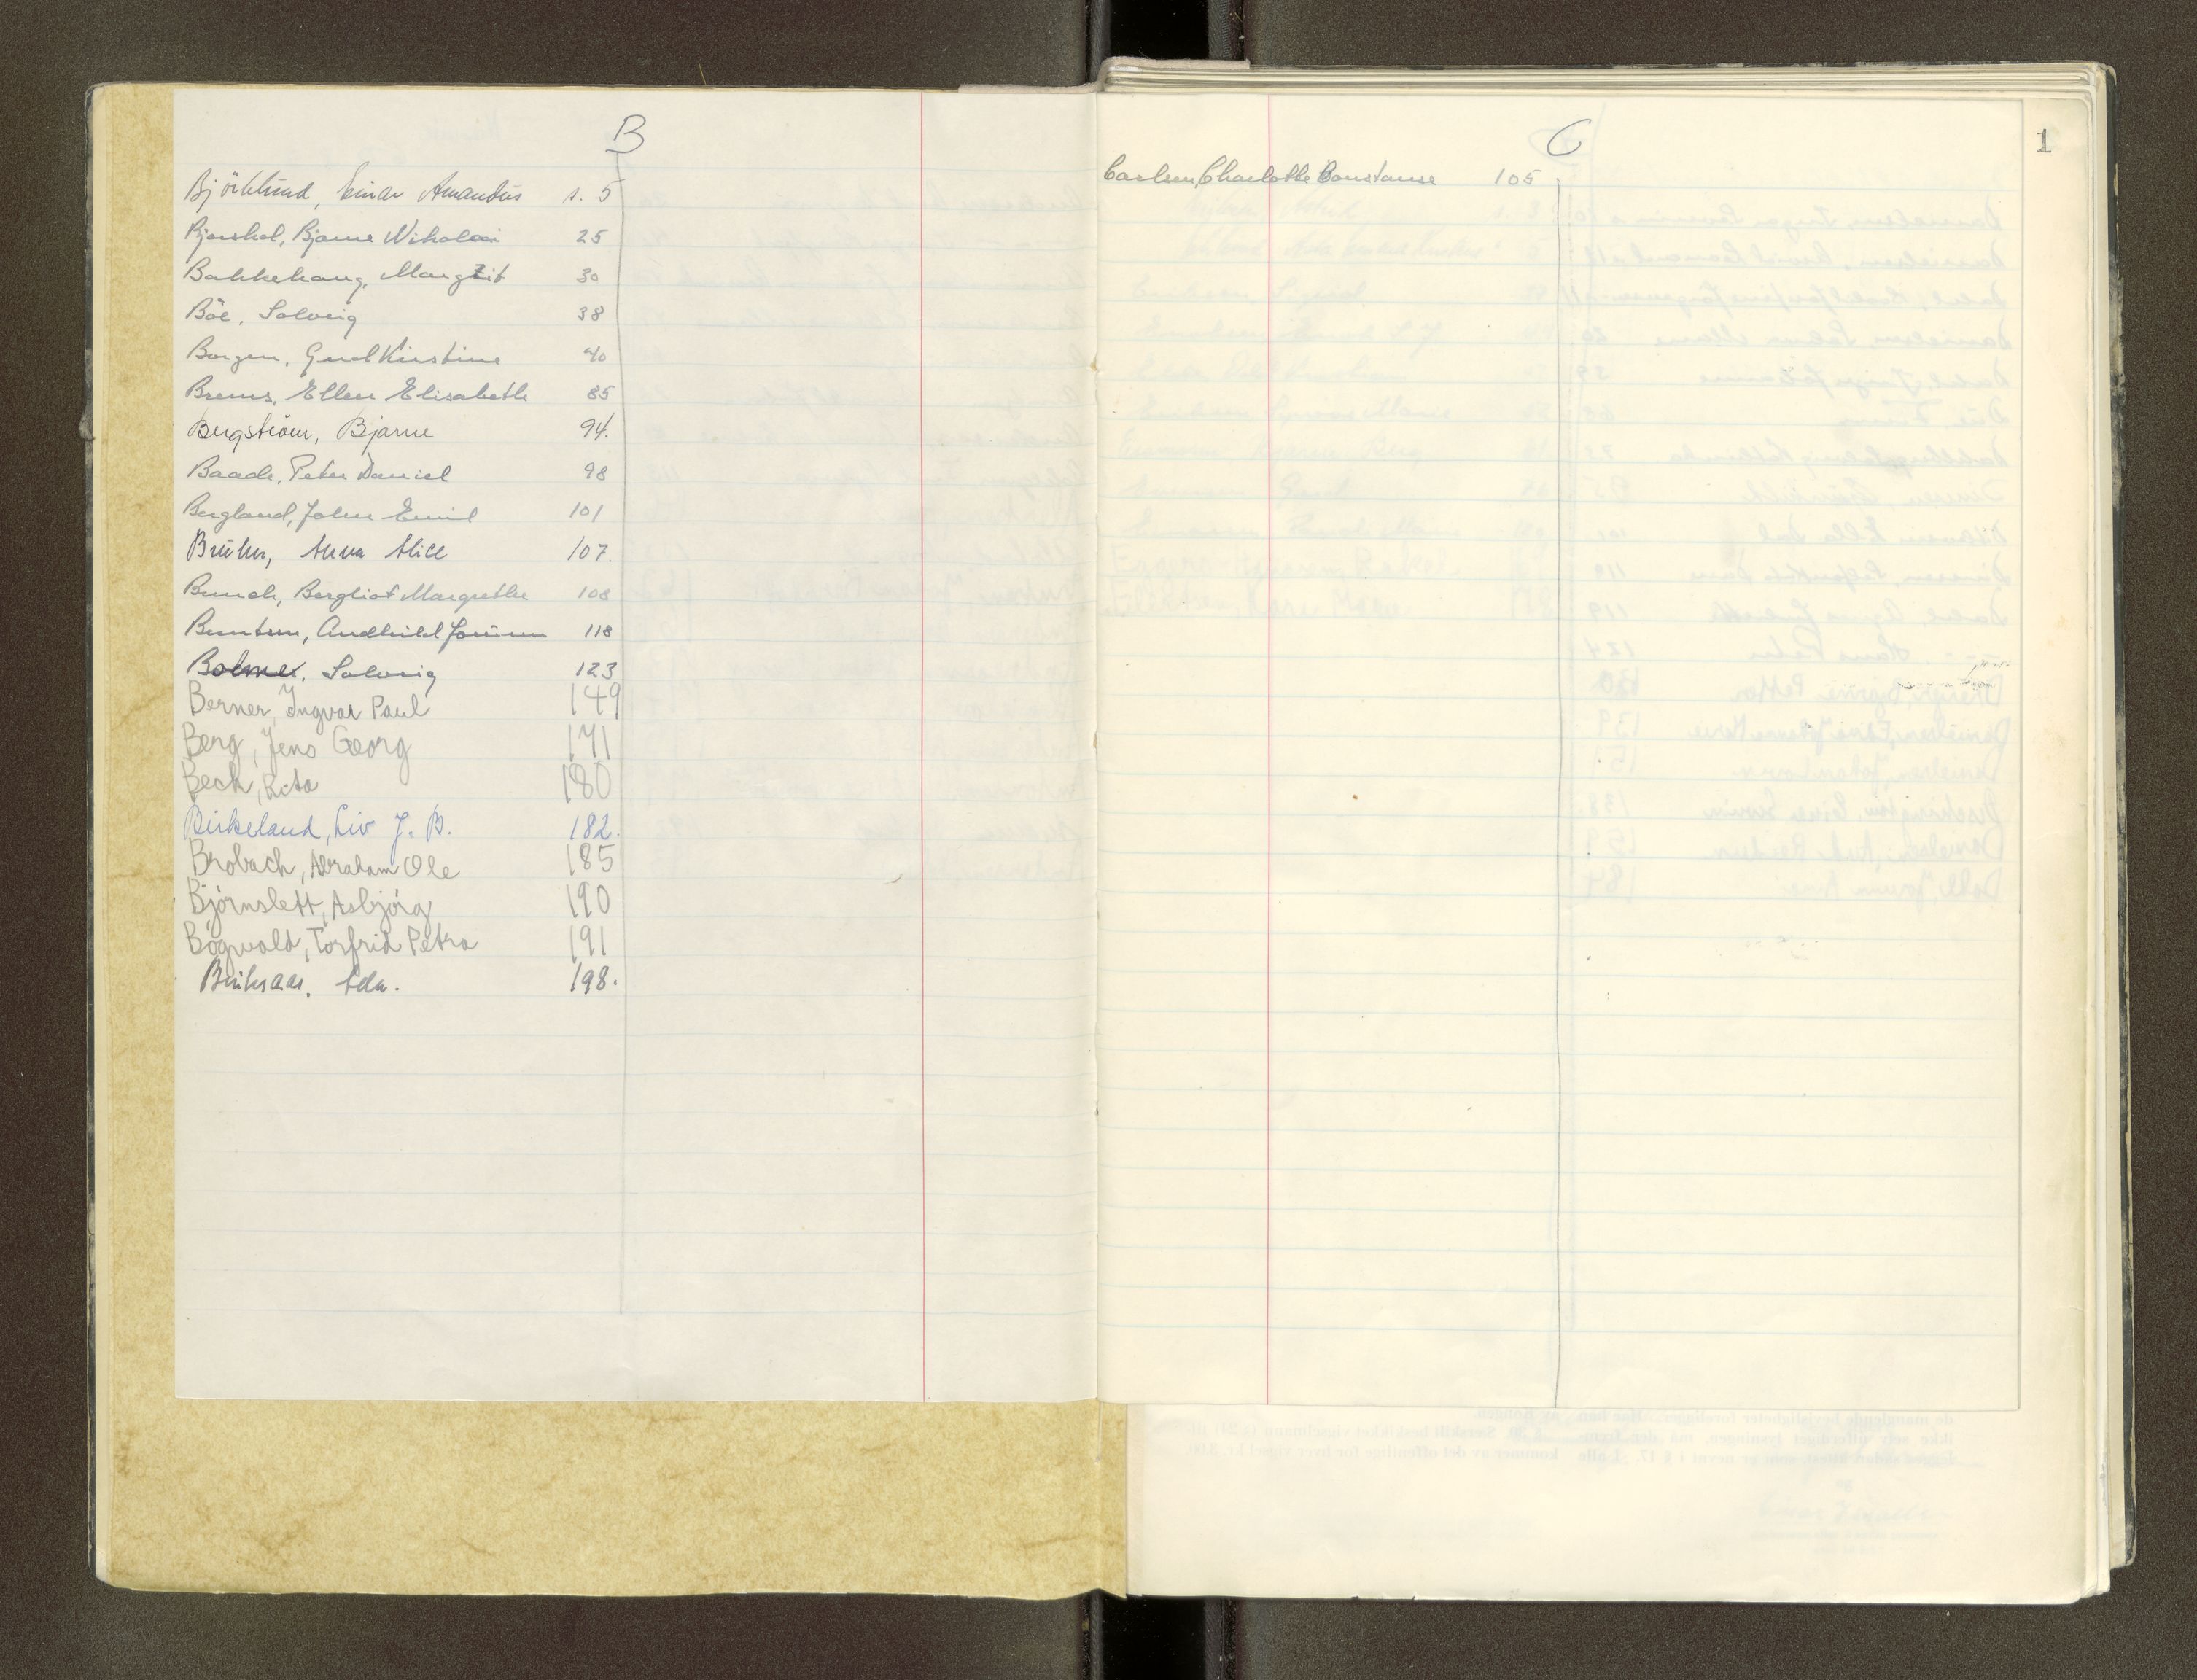 B
Björklund, Einar Amandus s. 5
Bjerskol, Bjarne Nikolai 25
Bakkehaug, Margrit 30
Böe, Solveig 38
Borgen, Gerd Kirstine 40
Brems, Ellen Elisabeth 85
Bergström, Bjarne 94.
Baade, Peter Daniel 98
Bergland, John Emil 101
Brühn, Anna Alice 107.
Bunch, Bergliot Margrethe 108
Berntsen, Andhild Jorunn 118
Bolme, Solveig 123
Berner, Ingvar Paul 149
Berg, Jens Georg 171
Beck, Rita 180
Birkeland, Liv J. B. 182.
Brobach, Abraham Ole 185
Bjørnslett, Asbjørg 190
Bøgwald, Torfrid Petra 191
Briksaas, Ada. 198.
C
Carlsen, Charlotte Constanse 105
1